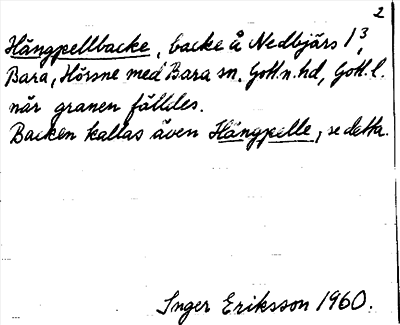 2
Hängpellbacke, backe å Nedbjärs 1³,
Bara, Hörsne med Bara sn. Gotl.n.hd, Gotl.l.
när granen fälldes.
Backen kallas även Hängpelle, se detta.
Inger Eriksson 1960.